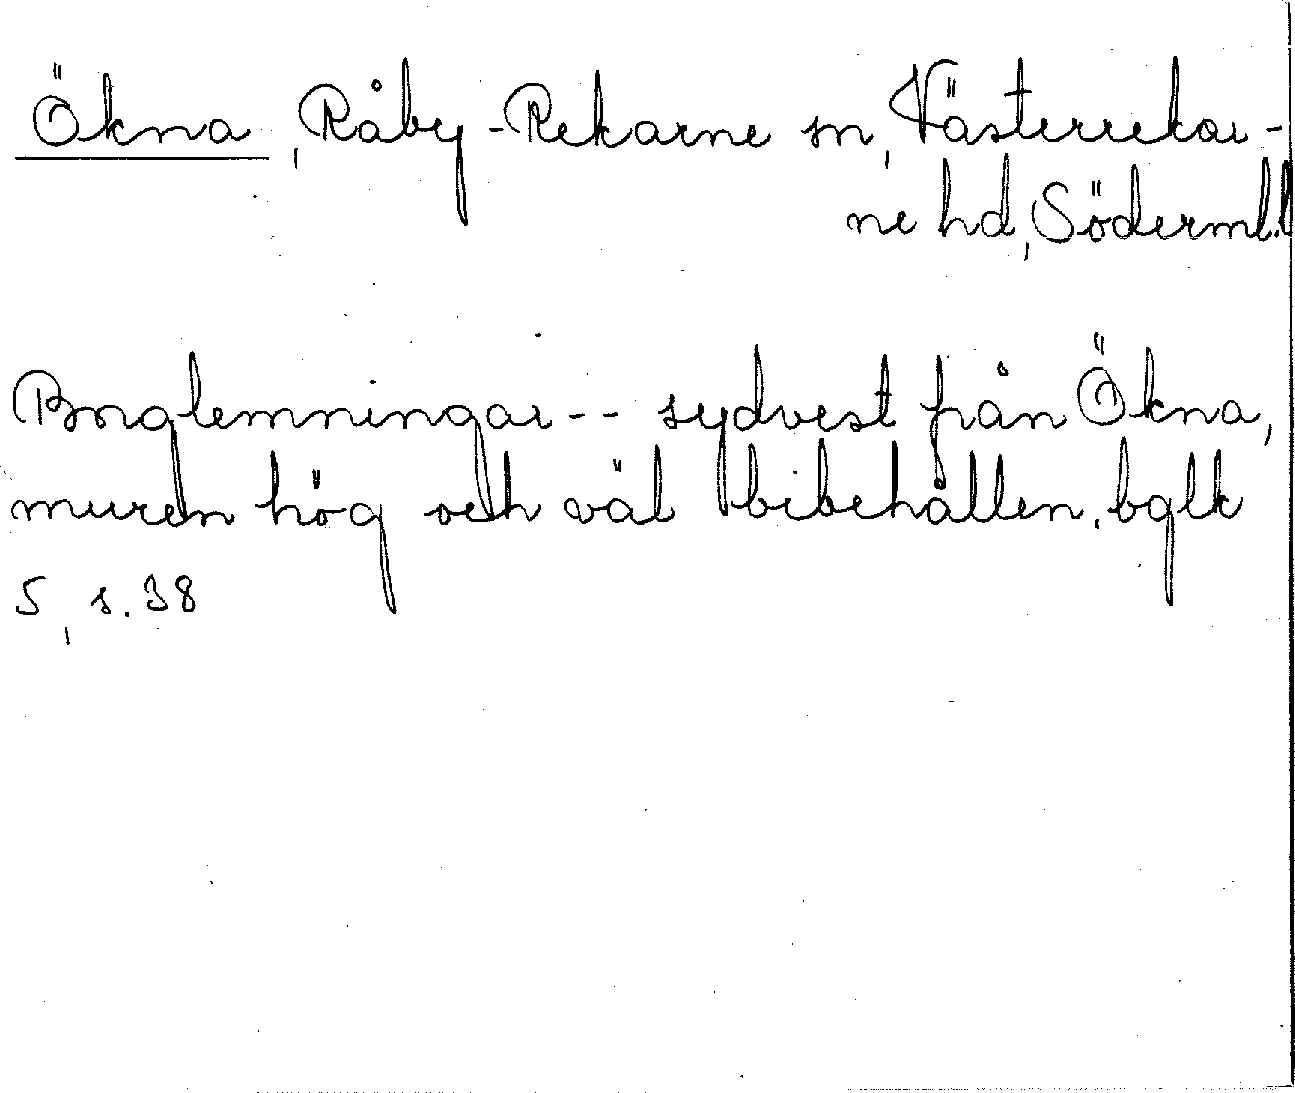 Ökna, Råby-Rekarne sn, Västerrekar-
ne hd, Söderml.l
Borglemningar -- sydvest från Ökna,
muren hög och väl bibehållen. bglk
5, s. 38